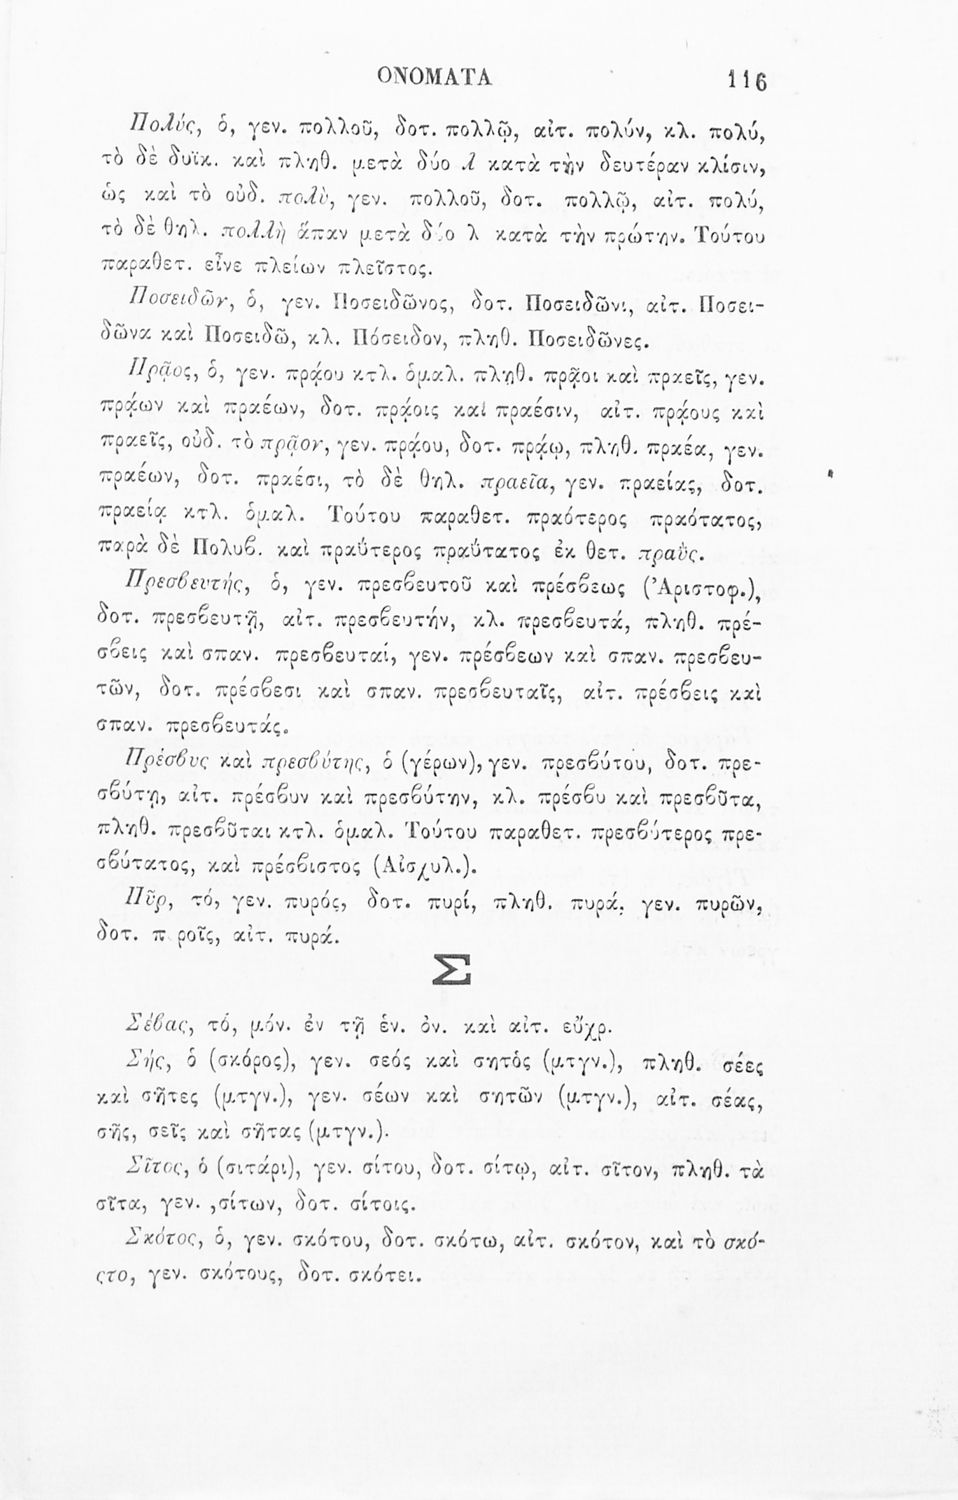 ΟΝΟΜΑΤΑ 116
Πολύς, ὁ, γεν. πολλοῦ, δοτ. πολλῷ, αἰτ. πολύν, κλ. πολύ,
τὸ δὲ δυϊκ. καὶ πληθ. μετὰ δύο λ κατὰ τὴν δευτέραν κλίσιν,
ὡς καὶ τὸ οὐδ. πολὺ, γεν. πολλοῦ, δοτ. πολλῷ, αἰτ. πολύ,
τὸ δὲ θηλ. πολλὴ ἅπαν μετὰ δύο λ κατὰ τὴν πρώτην. Τούτου
παραθετ. εἶνε πλείων πλεῖστος.
Ποσειδῶν, ὁ, γεν. Ποσειδῶνος, δοτ. Ποσειδῶνι, αἰτ. Ποσει-
δῶνα καὶ Ποσειδῶ, κλ. Πόσειδον, πληθ. Ποσειδῶνες.
Πρᾷος, ὁ, γεν. πρᾴου κτλ. ὁμαλ. πληθ. πρᾷοι καὶ πραεῖς, γεν.
πρᾴων καὶ πραέων, δοτ. πρᾴοις καὶ πραέσιν, αἰτ. πρᾴους καὶ
πραεῖς, οὐδ. τὸ πρᾷον, γεν. πρᾴου, δοτ. πρᾴῳ, πληθ. πραέα, γεν.
πραέων, δοτ. πραέσι, τὸ δὲ θηλ. πραεῖα, γεν. πραείας, δοτ.
πραείᾳ κτλ. ὁμαλ. Τούτου παραθετ. πραότερος πραότατος,
παρὰ δὲ Πολυβ. καὶ πραΰτερος πραΰτατος ἐκ θετ. πραῢς.
Πρεσβευτής, ὁ, γεν. πρεσβευτοῦ καὶ πρέσβεως (Ἀριστοφ.),
δοτ. πρεσβευτῇ, αἰτ. πρεσβευτήν, κλ. πρεσβευτά, πληθ. πρέ-
σβεις καὶ σπαν. πρεσβευταί, γεν. πρέσβεων καὶ σπαν. πρεσβευ-
τῶν, δοτ. πρέσβεσι καὶ σπαν. πρεσβευταῖς, αἰτ. πρέσβεις καὶ
σπαν. πρεσβευτάς.
Πρέσβυς καὶ πρεσβύτης, ὁ (γέρων), γεν. πρεσβύτου, δοτ. πρε-
σβύτῃ, αἰτ. πρέσβυν καὶ πρεσβύτην, κλ. πρέσβυ καὶ πρεσβῦτα,
πληθ. πρεσβῦται κτλ. ὁμαλ. Τούτου παραθετ. πρεσβύτερος πρε-
σβύτατος, καὶ πρέσβιστος (Αἰσχυλ.).
Πῦρ, τό, γεν. πυρός, δοτ. πυρί, πληθ. πυρά, γεν. πυρῶν,
δοτ. π ροῖς, αἰτ. πυρά.
Σ
Σέβας, τό, μόν. ἐν τῇ ἑν. ὀν. καὶ αἰτ. εὔχρ.
Σής, ὁ (σκόρος), γεν. σεός καὶ σητὸς (μτγν.), πληθ. σέες
καὶ σῆτες (μτγν.), γεν. σέων καὶ σητῶν (μτγν.), αἰτ. σέας,
σῆς, σεῖς καὶ σῆτας (μτγν.).
Σῖτος, ὁ (σιτάρι), γεν. σίτου, δοτ. σίτῳ, αἰτ. σῖτον, πληθ. τὰ
σῖτα, γεν. ,σίτων, δοτ. σίτοις.
Σκότος, ὁ, γεν. σκότου, δοτ. σκότω, αἰτ. σκότον, καὶ τὸ σκό-
ςτο, γεν. σκότους, δοτ. σκότει.